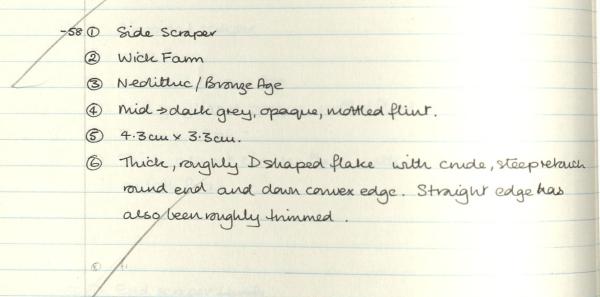 -58 ① Side Scraper
② Wick Farm
③ Neolithic/Bronze Age
④ Mid → dark grey, opaque, mottled flint.
⑤ 4.3cm x 3.3cm.
⑥ Thick, roughly D shaped flake with crude, steep retouch
round end and down convex edge. Straight edge has
also been roughly trimmed.